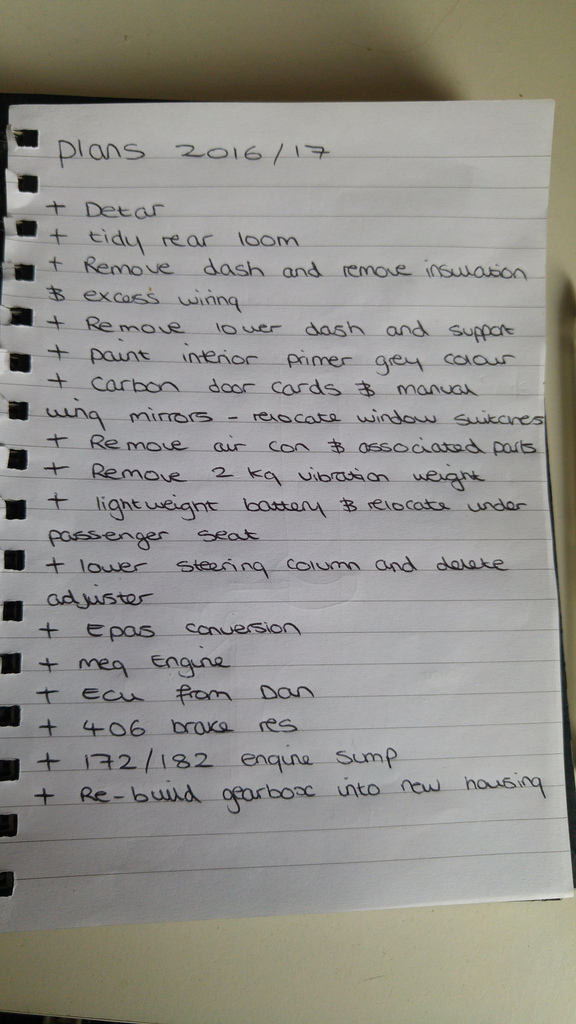 plans 2016/17
+ Detar
+ tidy rear loom
+ Remove dash and remove insulation
& excess wiring
+ Remove lower dash and support
+ paint interior primer grey colour
+ Carbon door cards & manual
wing mirrors - relocate window switches
+ Remove air con & associated parts
+ Remove 2 kg vibration weight
+ lightweight battery & relocate under
passenger seat
+ lower steering column and delete
adjuster
+ Epas conversion
+ meg Engine
+ ECU from Dan
+ 406 brake res
+ 172/182 engine sump
+ Re-build gearbox into new housing